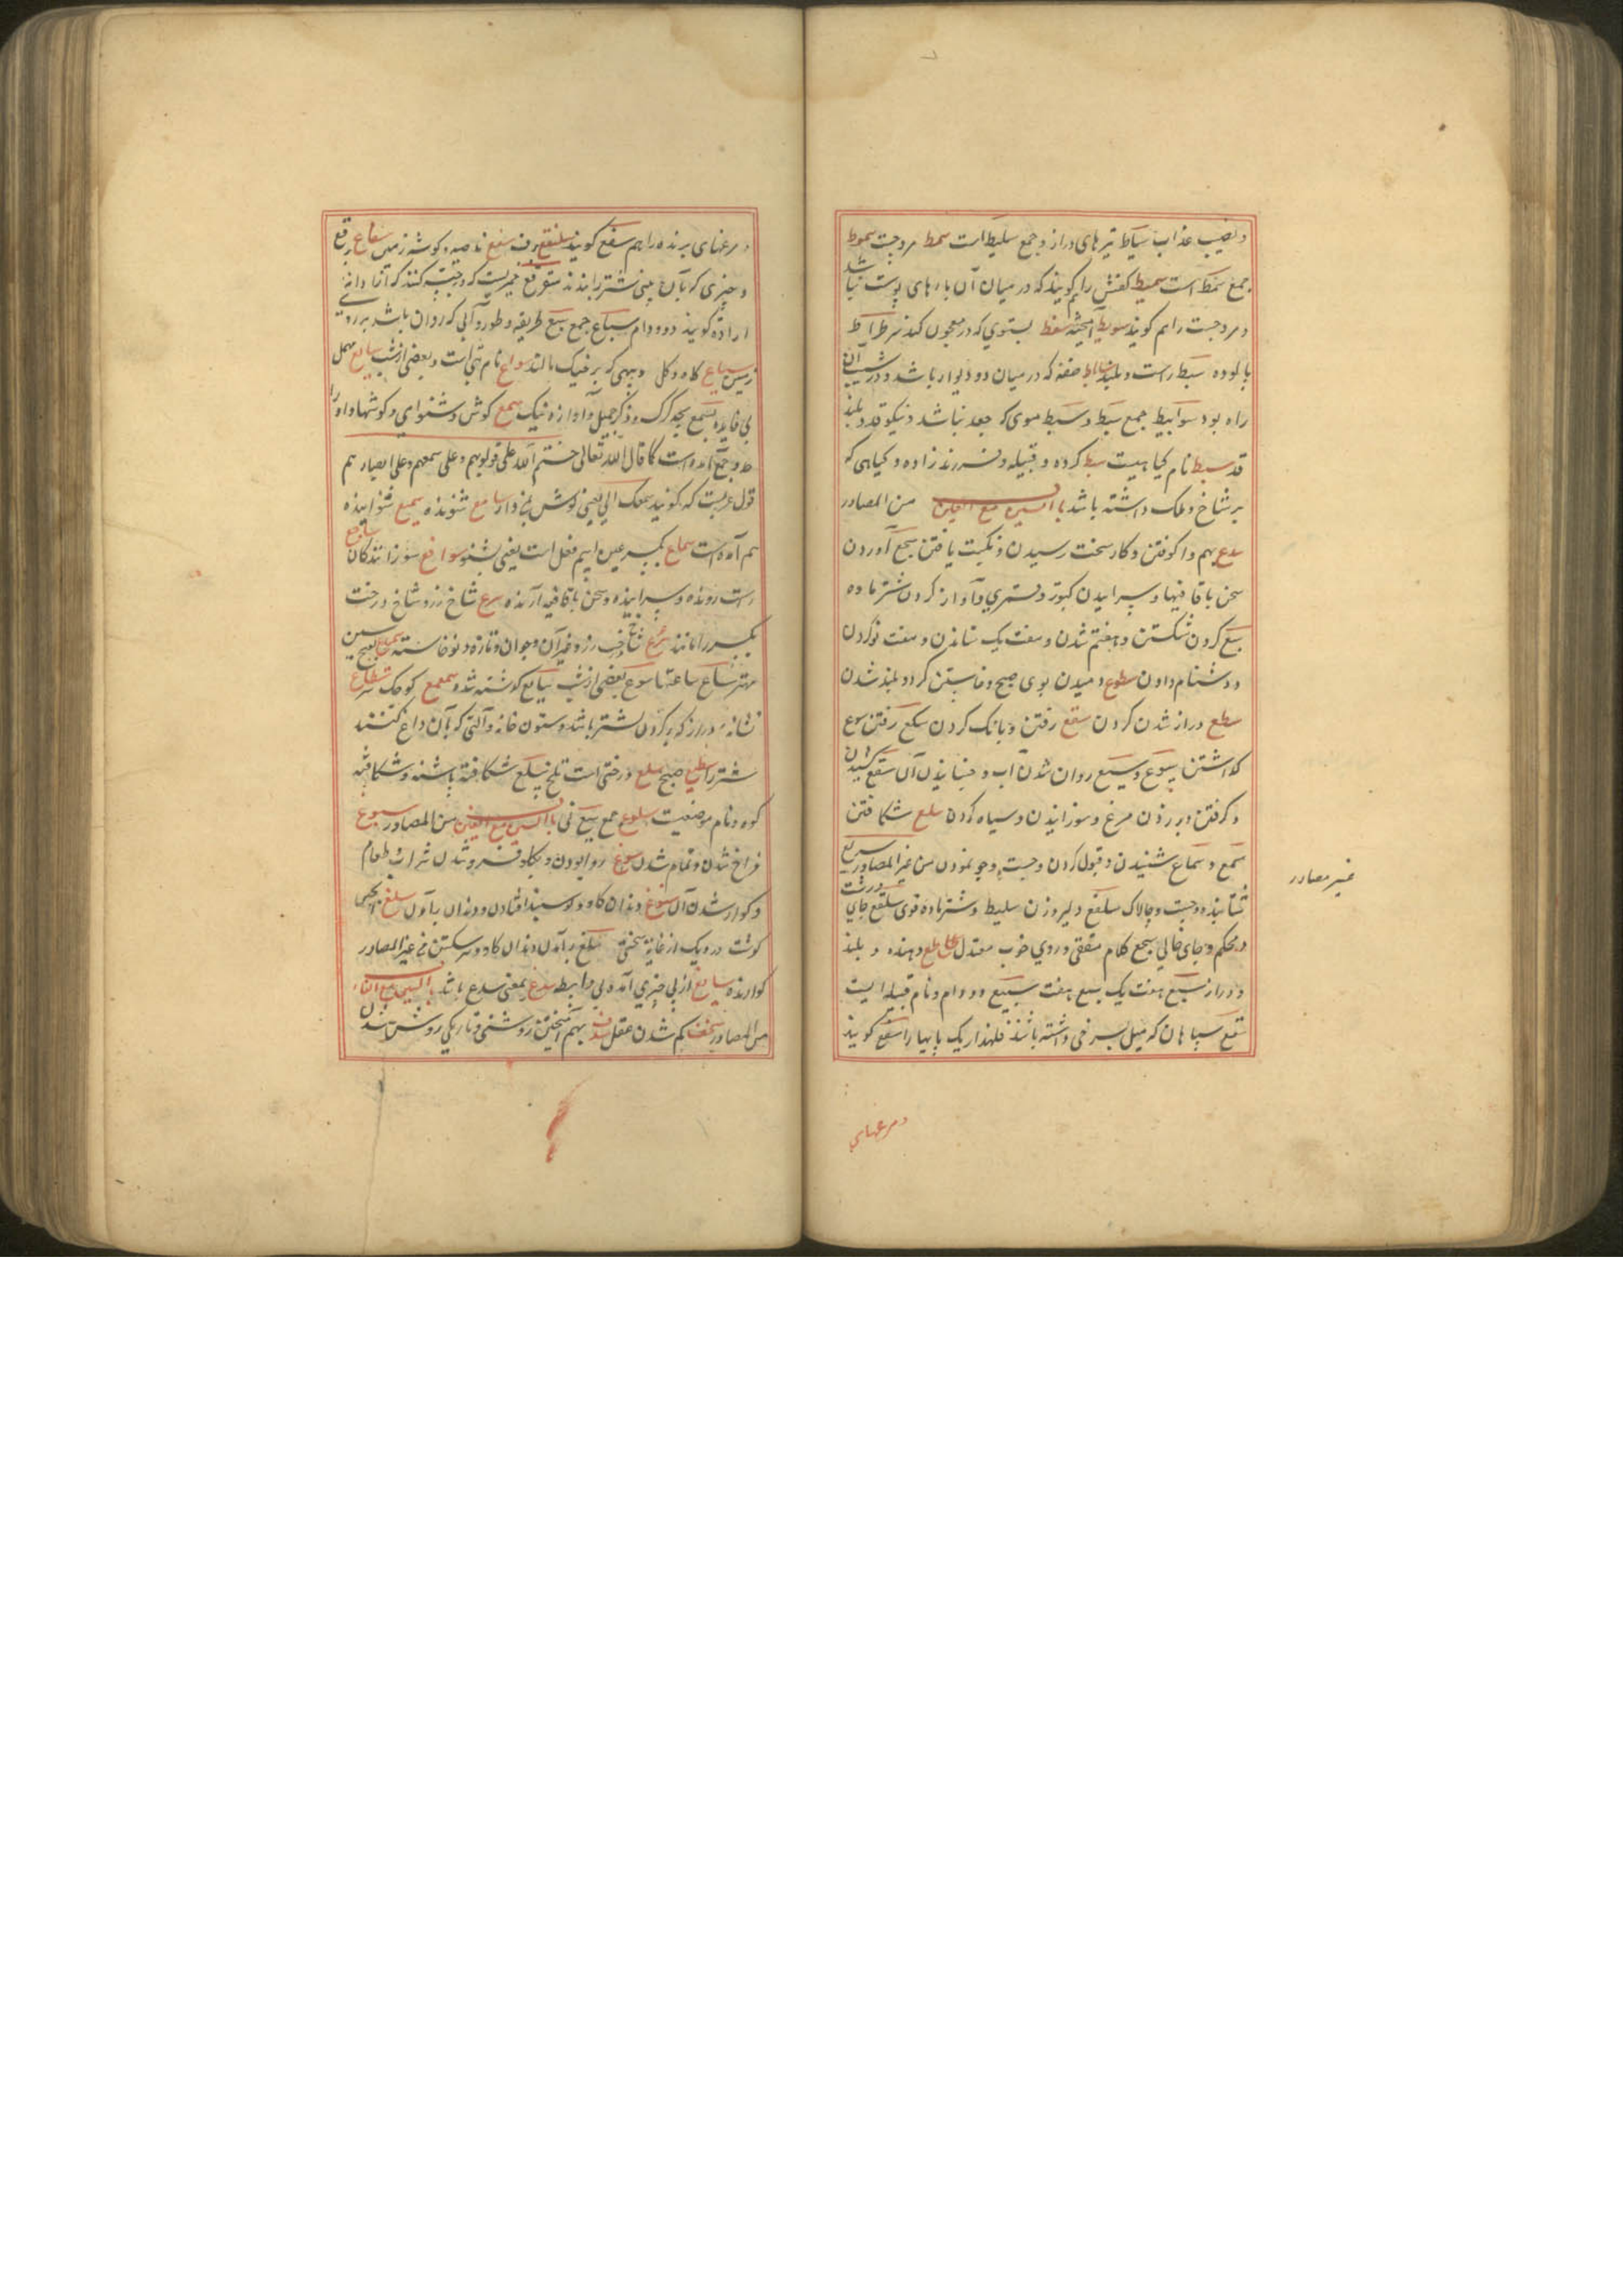 و نصیب عذاب سیاط تیرهای دراز و جمع سلیط است سمط مروجت سموط
جمع سمط است سمیط کفش را گویند که در میان آن پارهای پوست نباشد
و مروجت را هم گویند سویط آمیخته سفط سرطراط
پالوده سبط راست و بلند ساباط صفه که در میان دو دیوار باشد و در شیب آن
راه بود سوابیط جمع سبط و سبط موی که جعد نباشد و نیکو قد و بلند
قد سبط نام گیاهیست سبط گروه و قبیله و فرزند زاده و گیاهی که
بر شاخ و برگ داشته باشد باب السین مع العین من المصادر
سدع بهم وا کوفتن و کار سخت رسیدن و نکبت یافتن سجع آوردن
سخن با قافیها و سراییدن کبوتر و قمری و آواز کردن شتر ماده
سبع کردن شکستن و هفتم شدن و هفت یک ستاندن و هفت تو کردن
و دشنام دادن سطوع دمیدن بوی صبح و خاستن گرد و بلند شدن
سطع دراز شدن گردن سقع رفتن و بانگ کردن سکع رفتن سوع
گذاشتن سیوع و سیع روان شدن آب و جنبانیدن آن سفع کشیدن
و گرفتن و بر زدن مرغ و سوزانیدن و سیاه کردن سلع شکافتن
سمع و سماع شنیدن و قبول کردن و جست و جو نمودن من غیر المصادر سریع
شتابنده و جست و چالاک سلفع دلیر و زن سلیط و شتر ماده قوی سلقع جای درشت
و محکم و جای خالی سجع کلام مقفی و روی خوب معتدل ساطع دهنده و بلند
و دراز سبع هفت یک سبع هفت سبیع دو و دام و نام قبیله ایست
سفع سیاهان که میل بسرخی داشته باشند فلهذا ریک پایها را سفع گویند
غیر مصادر
و مرغهای
و مرغهای پرنده را هم سفع گویند سلنقع برق سقع ناحیه و گوشه زمین سقاع برقع
و چیزی که بآن بینی شتر را بندند
اراده گویند دو و دام سباع جمع سبع طریقه و طور و آبی که روان باشد بر روی
زمین سیاع کاه و گل و پیهی که بر خیک مالند سواع نام بتی است و بعضی از شب سایع مهمل
بی فایده سمع بچه گرگ و ذکر جمیل و آوازه نیک سمع گوش و شنوای و گوشها واو را
حد و جمع آمده است کما قال الله تعالی ختم الله علی قلوبهم و علی سمعهم و علی ابصارهم
قول عربست که گویند سمعک الی یعنی گوش بمن دار سامع شنونده سمیع شنوانیده
هم آمده است سماع بکسر عین اسم فعل است یعنی بشنو سوافع سوزانندگان ساجع
راست رونده و سراینده و سخن با قافیه آرنده سرع شاخ رز و شاخ درخت
یکسر را مانند سرع شاخ رز و غیر آن و جوان و تازه و نوخاسته
مهتر ساع ساعتها سوع بعضی از شب سیایع گذشته شد و سمعمع کوچک سر سطاع
نشانه دراز که بر گردن شتر باشد و ستون خانه و آلتی که بآن داغ کنند
شتر را سطیع صبح سلع درختی است تلخ سلع شکافته پاشنه و شکافته
کوه و نام موضعیست سلوع جمع سبع نی باب السین مع الغین من المصادر سبوغ
فراخ شدن و تمام شدن سوغ روا بودن و بگلو فرو شدن شراب و طعام
و گوار شدن آن سلوغ دندان گاو و گوسپند افتادن و دندان بر آوردن سلغ
گوشت در دیک از غایت سختی سلغ بر آمدن دندان گاو و سر شکستن من غیر المصادر
گوارنده سایغ از پی چیزی آمده بی واسطه سدغ بمعنی سدع باشد باب السین مع الفاء
من المصادر سخف کم شدن عقل سدف بهم آمیختن روشنی و تاریکی روشن شدن